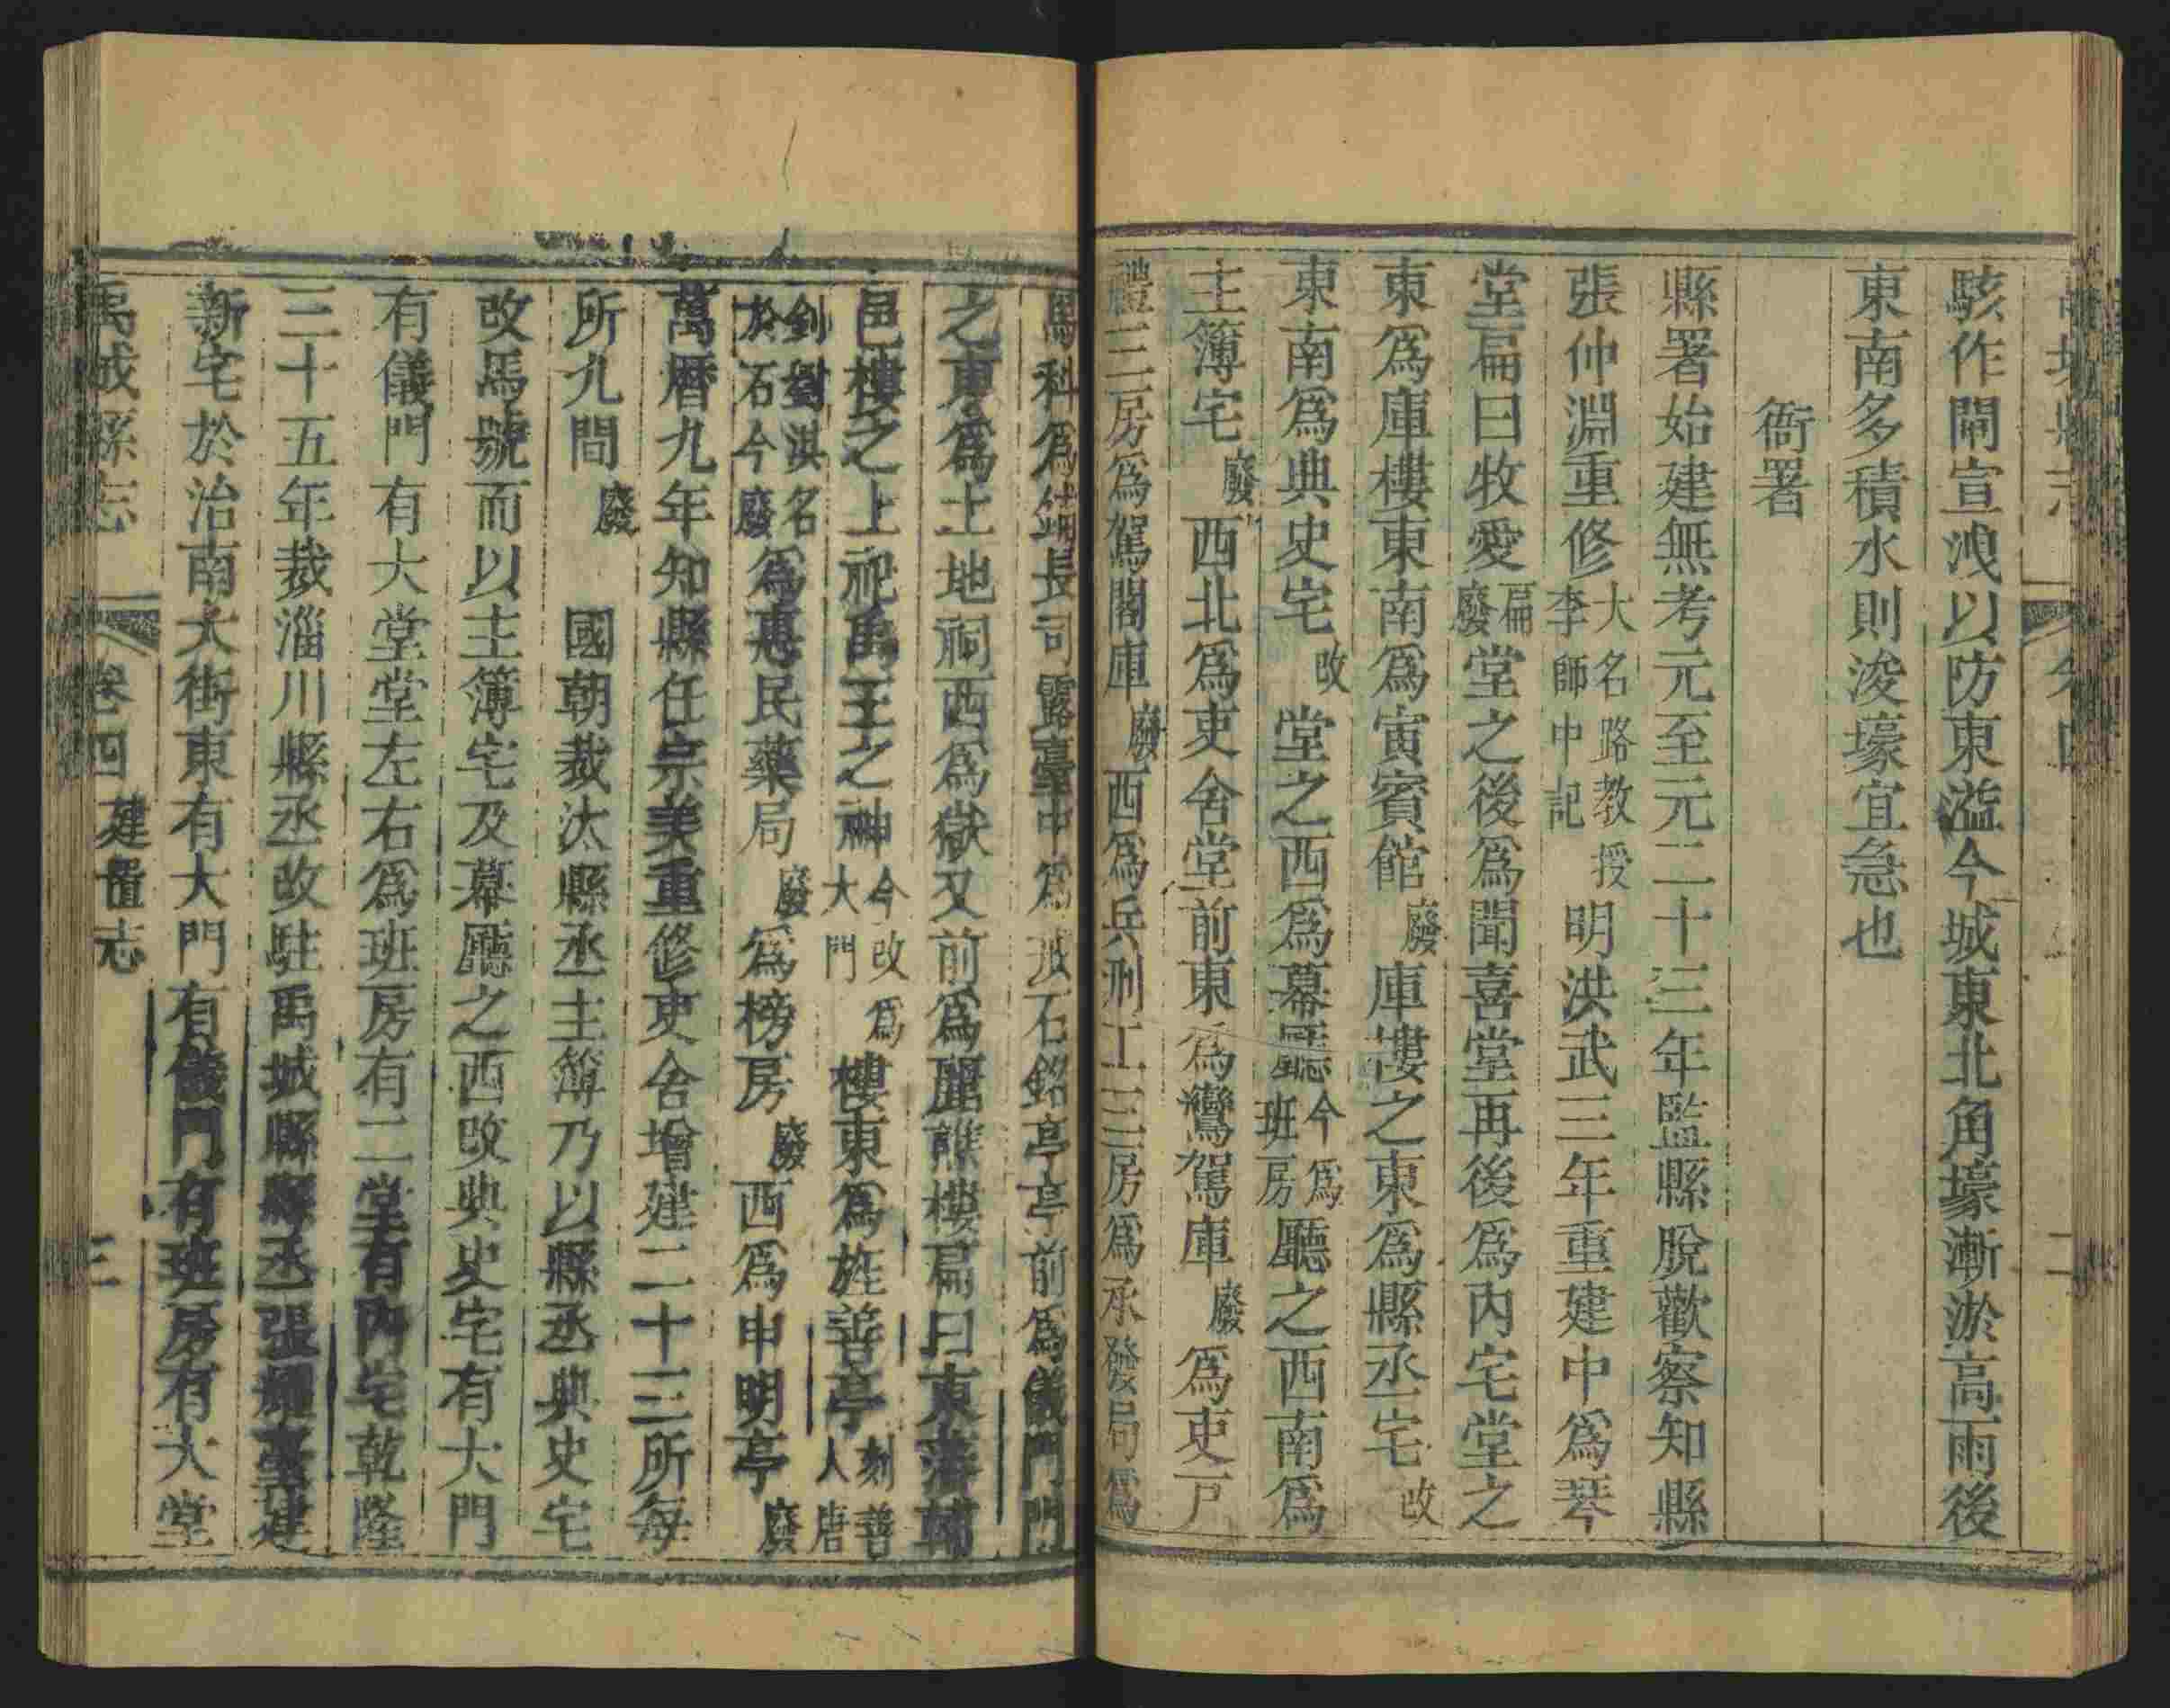 駭作閘宣洩以防東溢今城東北角壕漸淤高雨後
東南多積水則浚壕宜急也
衙署
縣署始建無考元至元二十三年監縣脫歡察知縣
張仲淵重修大名路教授李師中記明洪武三年重建中爲琴
堂扁曰牧愛扁廢堂之後爲聞喜堂再後爲內宅堂之
東爲庫樓東南爲寅賓館廢庫樓之東爲縣丞宅改
東南爲典史宅改堂之西爲幕廳今爲班房廳之西南爲
主簿宅廢西北爲吏舍堂前東爲鸞駕庫廢爲吏戶
禮三房爲駕閣庫廢西爲兵刑工三房爲承發局爲
馬科爲鋪長司露臺中爲戒石銘亭亭前爲儀門門
之東爲土地祠西爲獄又前爲麗譙樓扁曰東藩輔
邑樓之上祀禹王之神今改爲大門樓東爲旌善亭刻善人唐
釗劉淇名於石今廢爲惠民藥局廢爲榜房廢西爲申明亭廢
萬曆九年知縣任宗美重修吏舍增建二十三所每
所九間廢國朝裁汰縣丞主簿乃以縣丞典史宅
改馬號而以主簿宅及幕廳之西改典史宅有大門
有儀門有大堂堂左右爲班房有二堂有內宅乾隆
三十五年裁淄川縣丞改駐禹城縣縣丞張〇臺建
新宅於治南大街東有大門有儀門有班房有大堂
禹城縣志 卷四 建置志 三